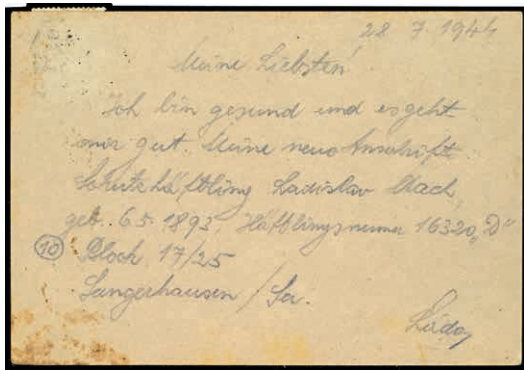 28 7. 1944
Meine Liebsten!
Ich bin gesund und es geht
mir gut. Meine neue Anschrift.
Schutzhäftling Ladislav Mach,
geb. 6.5. 1893, Häftlingsnumer 16320 „D“
10 Block 17/25
Sangerhausen / Sa.
Láďa